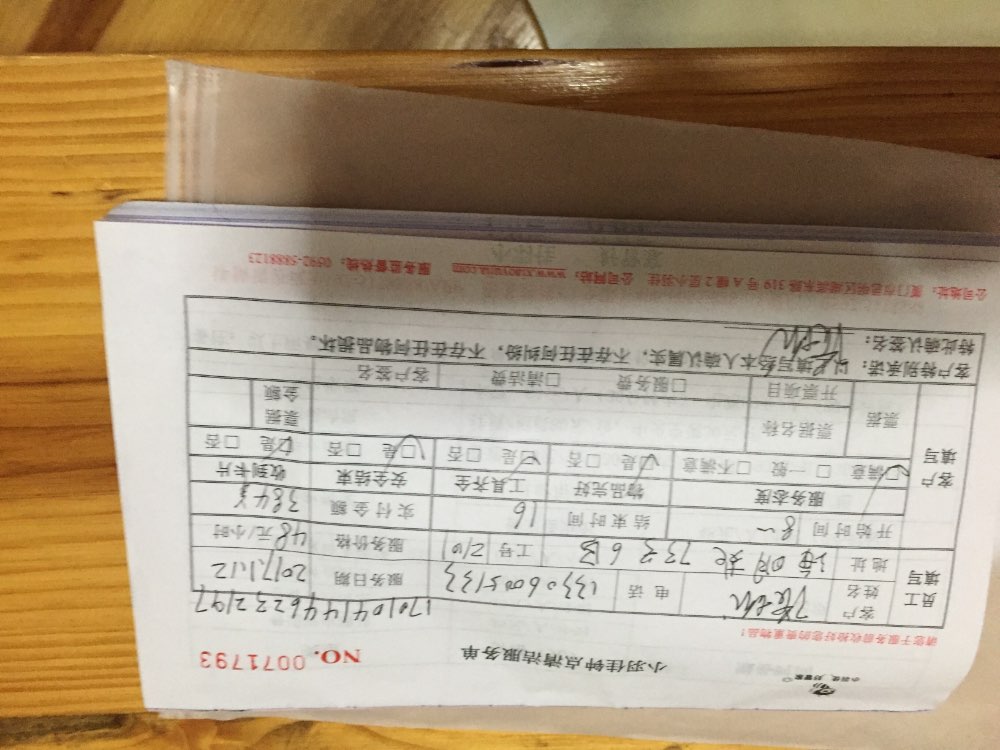 小羽佳 好管家
小羽佳钟点清洁服务单
NO. 0071793
请您于服务前收拾好您的贵重物品！
1701041446232197
员工填写
客户姓名
电话 13306005133
服务日期 2017.1.12
地址 7336B
工号 2101
服务价格 48元/小时
开始时间 8~
结束时间 16
实付金额 384
客户填写
服务态度 物品完好 工具齐全 安全结束 收到卡片
☑满意 □一般 □不满意 ☑是 □否 ☑是 □否 ☑是 □否 ☑是 □否
票据 票据名称 票据金额
开票项目 □服务费 □清洁费 客户签名
客户特别承诺：以上填写经本人确认属实，不存在任何纠纷，不存在任何物品损坏。
特此确认签名：
公司地址：厦门市思明区湖滨东路319号A幢2层小羽佳 公司网站：www.xiaoyujia.com 服务监督热线：0592-5888123